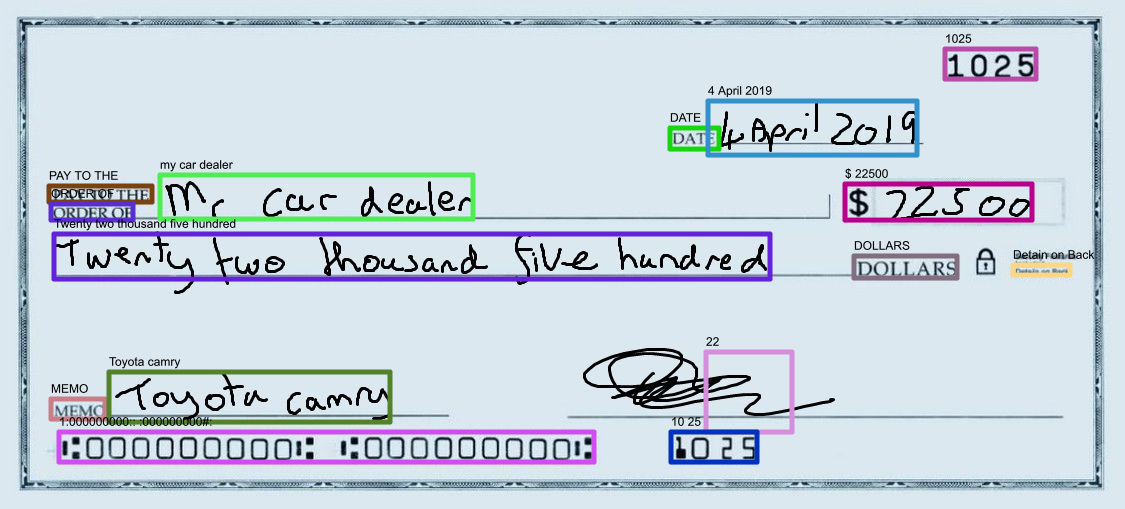 1025
1025
4 April 2019
DATE
DATE 4 April 2019
my car dealer
PAY TO THE
ORDER OF
PAY TO THE
ORDER OF Mr car dealer
$ 22500
$ 22500
Twenty two thousand five hundred
Twenty two thousand five hundred
DOLLARS
DOLLARS
Detain on Back
22
Toyota camry
MEMO
MEMO Toyota camry
1:000000000:: :000000000#:
⑆000000000⑆ ⑆000000000⑆
10 25
1025